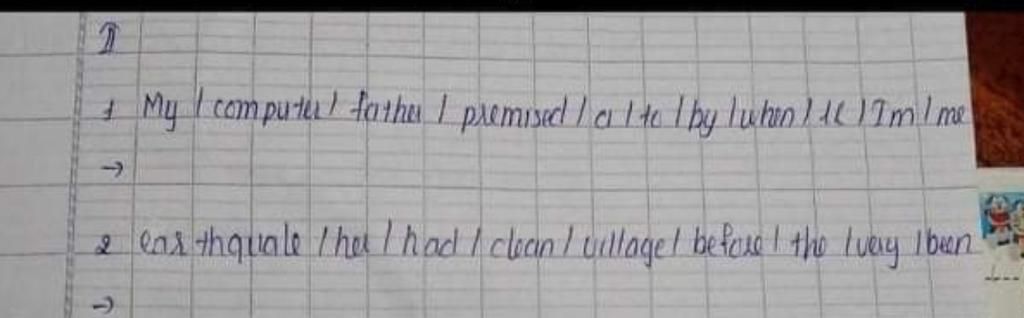 II
1 My / computer / father / promised / a / to / by / when / 16 / I'm / me
→
2 earthquale / her / had / clean / village / before / the / very / been
→